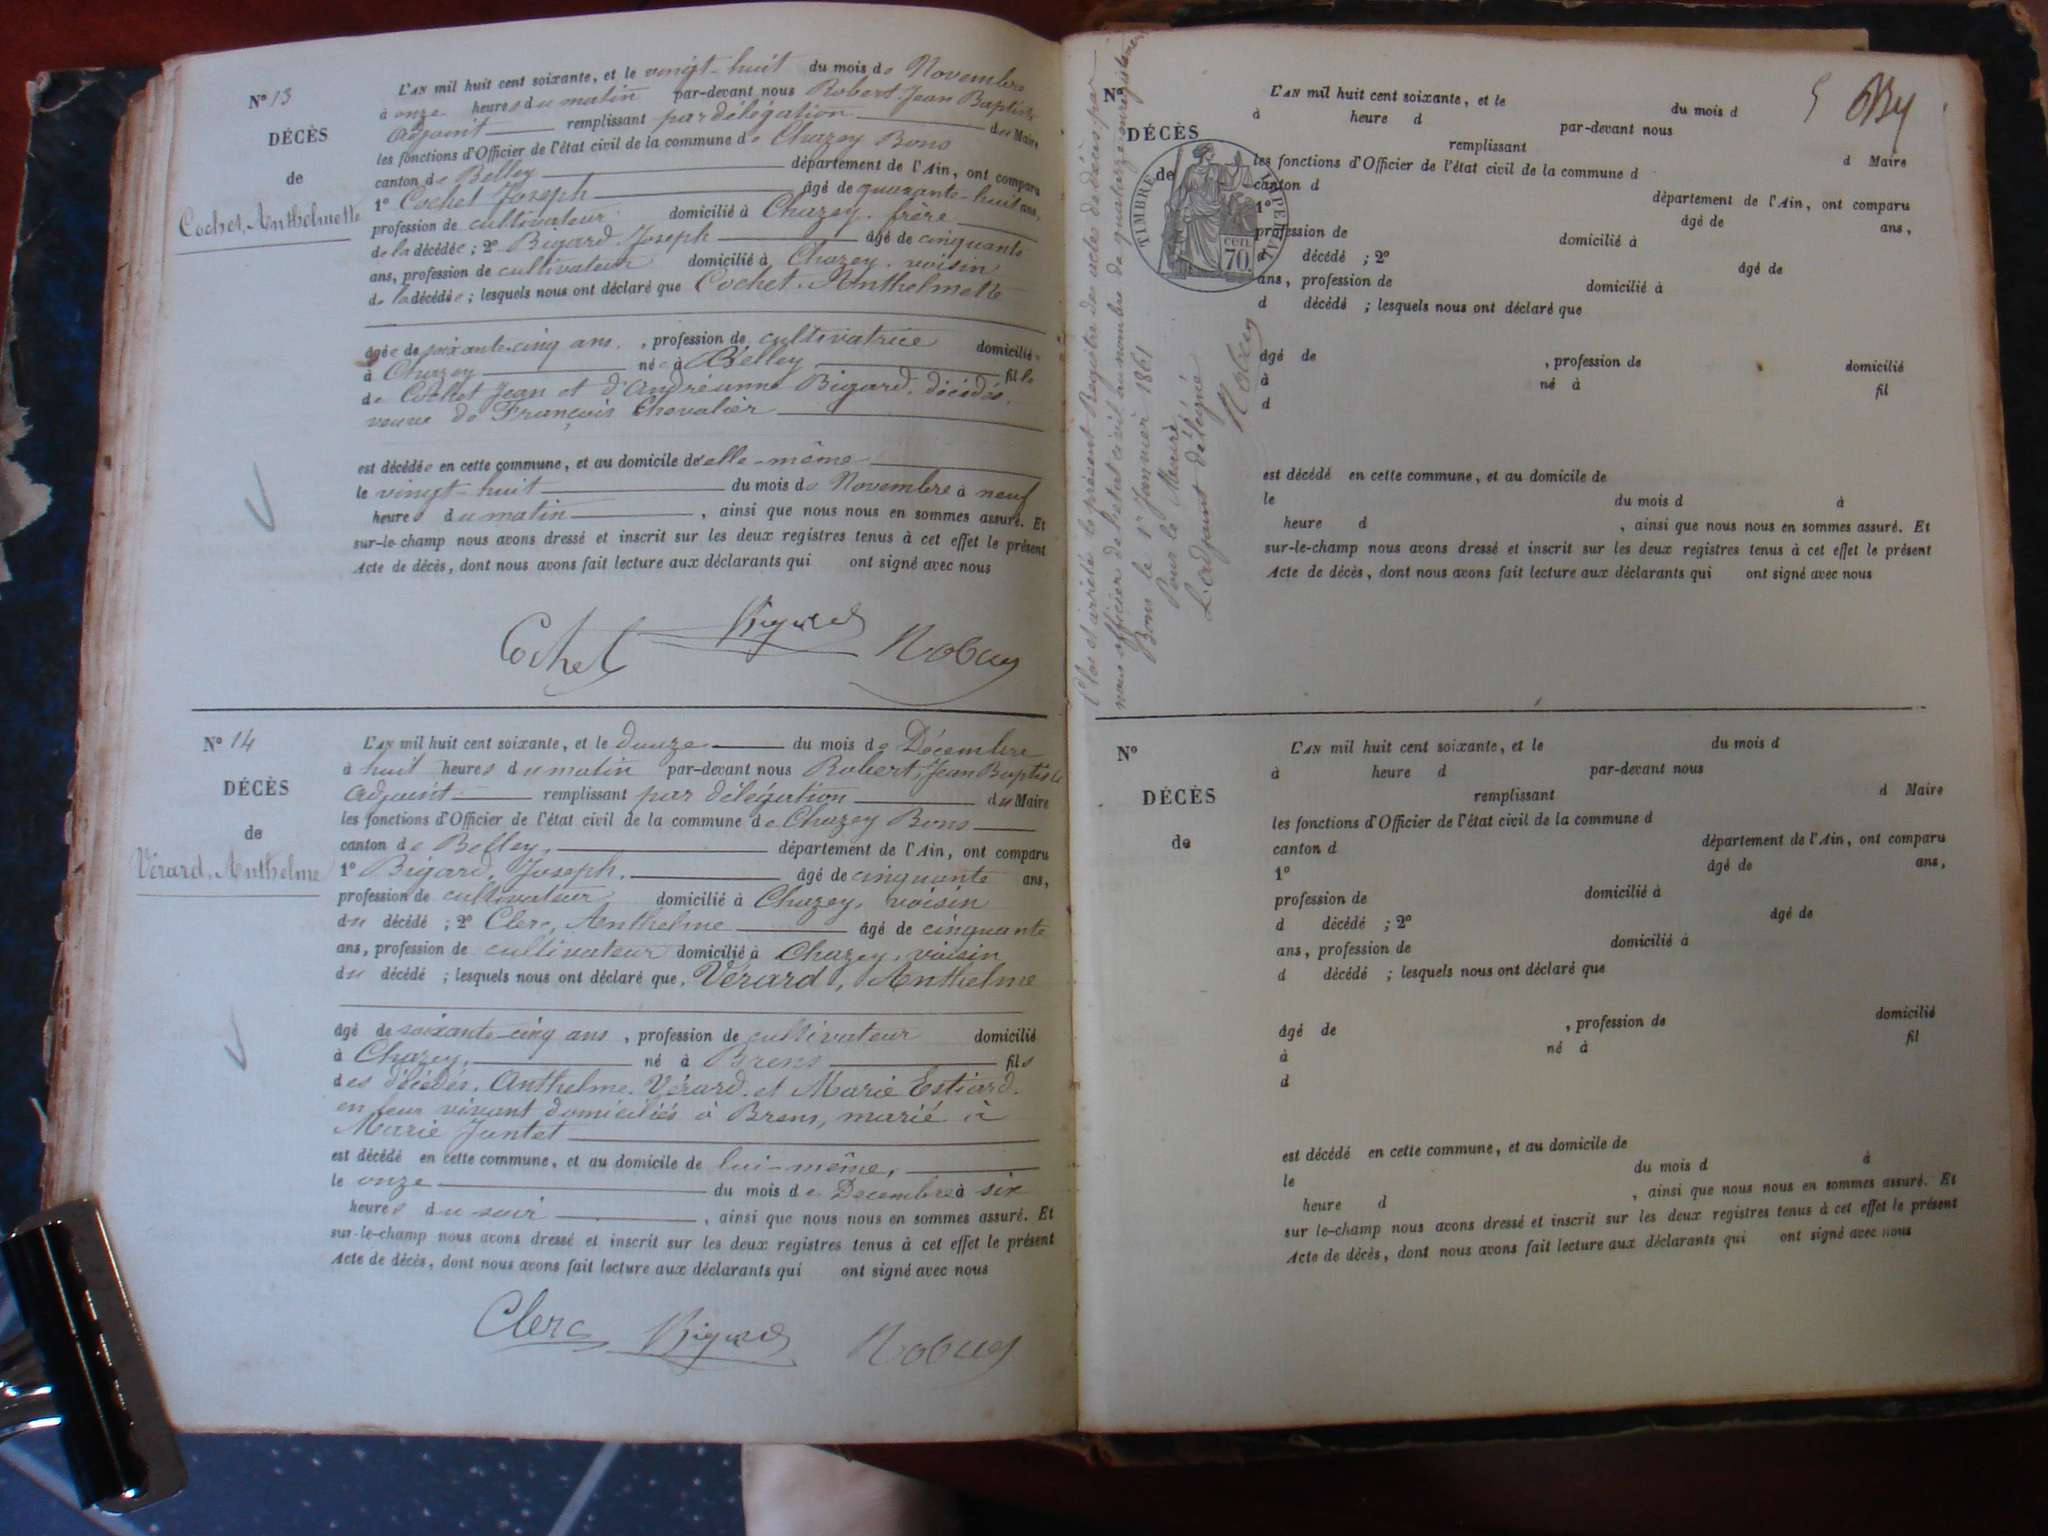 N° 13
DÉCÈS
de
Cochet, Anthelmette
L'AN mil huit cent soixante, et le vingt-huit du mois de Novembre
à onze heures du matin par-devant nous Robert Jean Baptiste
adjoint remplissant par délégation du Maire
les fonctions d'Officier de l'état civil de la commune de Chazey Bons
canton de Belley département de l'Ain, ont comparu
1° Cochet Joseph âgé de quarante-huit ans,
profession de cultivateur domicilié à Chazey, frère
de la décédée ; 2° Bigard Joseph âgé de cinquante
ans, profession de cultivateur domicilié à Chazey, voisin
de la décédée ; lesquels nous ont déclaré que Cochet, Anthelmette
âgée de soixante-cinq ans, profession de cultivatrice domiciliée
à Chazey née à Belley fille
de Cochet Jean et d'Andréanne Bigard, décédés,
veuve de François Chevalier
est décédée en cette commune, et au domicile d'elle-même
le vingt-huit du mois de Novembre à neuf
heures du matin, ainsi que nous nous en sommes assuré. Et
sur-le-champ nous avons dressé et inscrit sur les deux registres tenus à cet effet le présent
Acte de décès, dont nous avons fait lecture aux déclarants qui ont signé avec nous
Cochet Bigard Robert
N° 14
DÉCÈS
de
Vérard, Anthelme
L'AN mil huit cent soixante, et le douze du mois de Décembre
à huit heures du matin par-devant nous Robert, Jean Baptiste
adjoint remplissant par délégation du Maire
les fonctions d'Officier de l'état civil de la commune de Chazey Bons
canton de Belley, département de l'Ain, ont comparu
1° Bigard, Joseph, âgé de cinquante ans,
profession de cultivateur domicilié à Chazey, voisin
du décédé ; 2° Clerc, Anthelme âgé de cinquante
ans, profession de cultivateur domicilié à Chazey, voisin
du décédé ; lesquels nous ont déclaré que, Vérard, Anthelme
âgé de soixante-cinq ans, profession de cultivateur domicilié
à Chazey, né à Brens fils
des décédés, Anthelme Vérard et Marie Estiard
en leur vivant domiciliés à Brens, marié à
Marie Juntet
est décédé en cette commune, et au domicile de lui-même,
le onze du mois de Décembre à six
heures du soir, ainsi que nous nous en sommes assuré. Et
sur-le-champ nous avons dressé et inscrit sur les deux registres tenus à cet effet le présent
Acte de décès, dont nous avons fait lecture aux déclarants qui ont signé avec nous
Clerc Bigard Robert
Clos et arrêté le présent Registre des actes de décès par
nous officier de l'état civil au nombre de quatorze enregistrements
Bons le 1er Janvier 1861
Pour le Maire
L'adjoint délégué
Robert
5
TIMBRE IMPÉRIAL
cen.
70
N°
DÉCÈS
de
L'AN mil huit cent soixante, et le du mois d
à heure d par-devant nous
remplissant d Maire
les fonctions d'Officier de l'état civil de la commune d
canton d département de l'Ain, ont comparu
1° âgé de ans,
profession de domicilié à
d décédé ; 2° âgé de
ans, profession de domicilié à
d décédé ; lesquels nous ont déclaré que
âgé de , profession de domicilié
à né à fil
d
est décédé en cette commune, et au domicile de
le du mois d à
heure d , ainsi que nous nous en sommes assuré. Et
sur-le-champ nous avons dressé et inscrit sur les deux registres tenus à cet effet le présent
Acte de décès, dont nous avons fait lecture aux déclarants qui ont signé avec nous
N°
DÉCÈS
de
L'AN mil huit cent soixante, et le du mois d
à heure d par-devant nous
remplissant d Maire
les fonctions d'Officier de l'état civil de la commune d
canton d département de l'Ain, ont comparu
1° âgé de ans,
profession de domicilié à
d décédé ; 2° âgé de
ans, profession de domicilié à
d décédé ; lesquels nous ont déclaré que
âgé de , profession de domicilié
à né à fil
d
est décédé en cette commune, et au domicile de
le du mois d à
heure d , ainsi que nous nous en sommes assuré. Et
sur-le-champ nous avons dressé et inscrit sur les deux registres tenus à cet effet le présent
Acte de décès, dont nous avons fait lecture aux déclarants qui ont signé avec nous